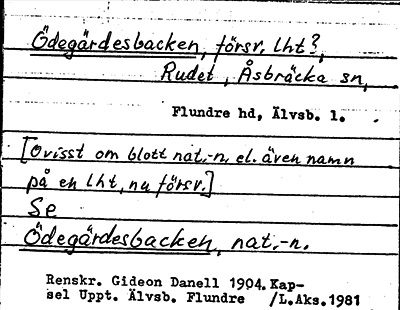 Ödegärdesbacken, försv. lht?,
Rudet, Åsbräcka sn,
Flundre hd, Älvsb. l.
[Ovisst om blott nat.-n. el. även namn
på en lht, nu försv.]
Se
Ödegärdesbacken, nat.-n.
Renskr. Gideon Danell 1904. Kap-
sel Uppt. Älvsb. Flundre /L.Aks.1981